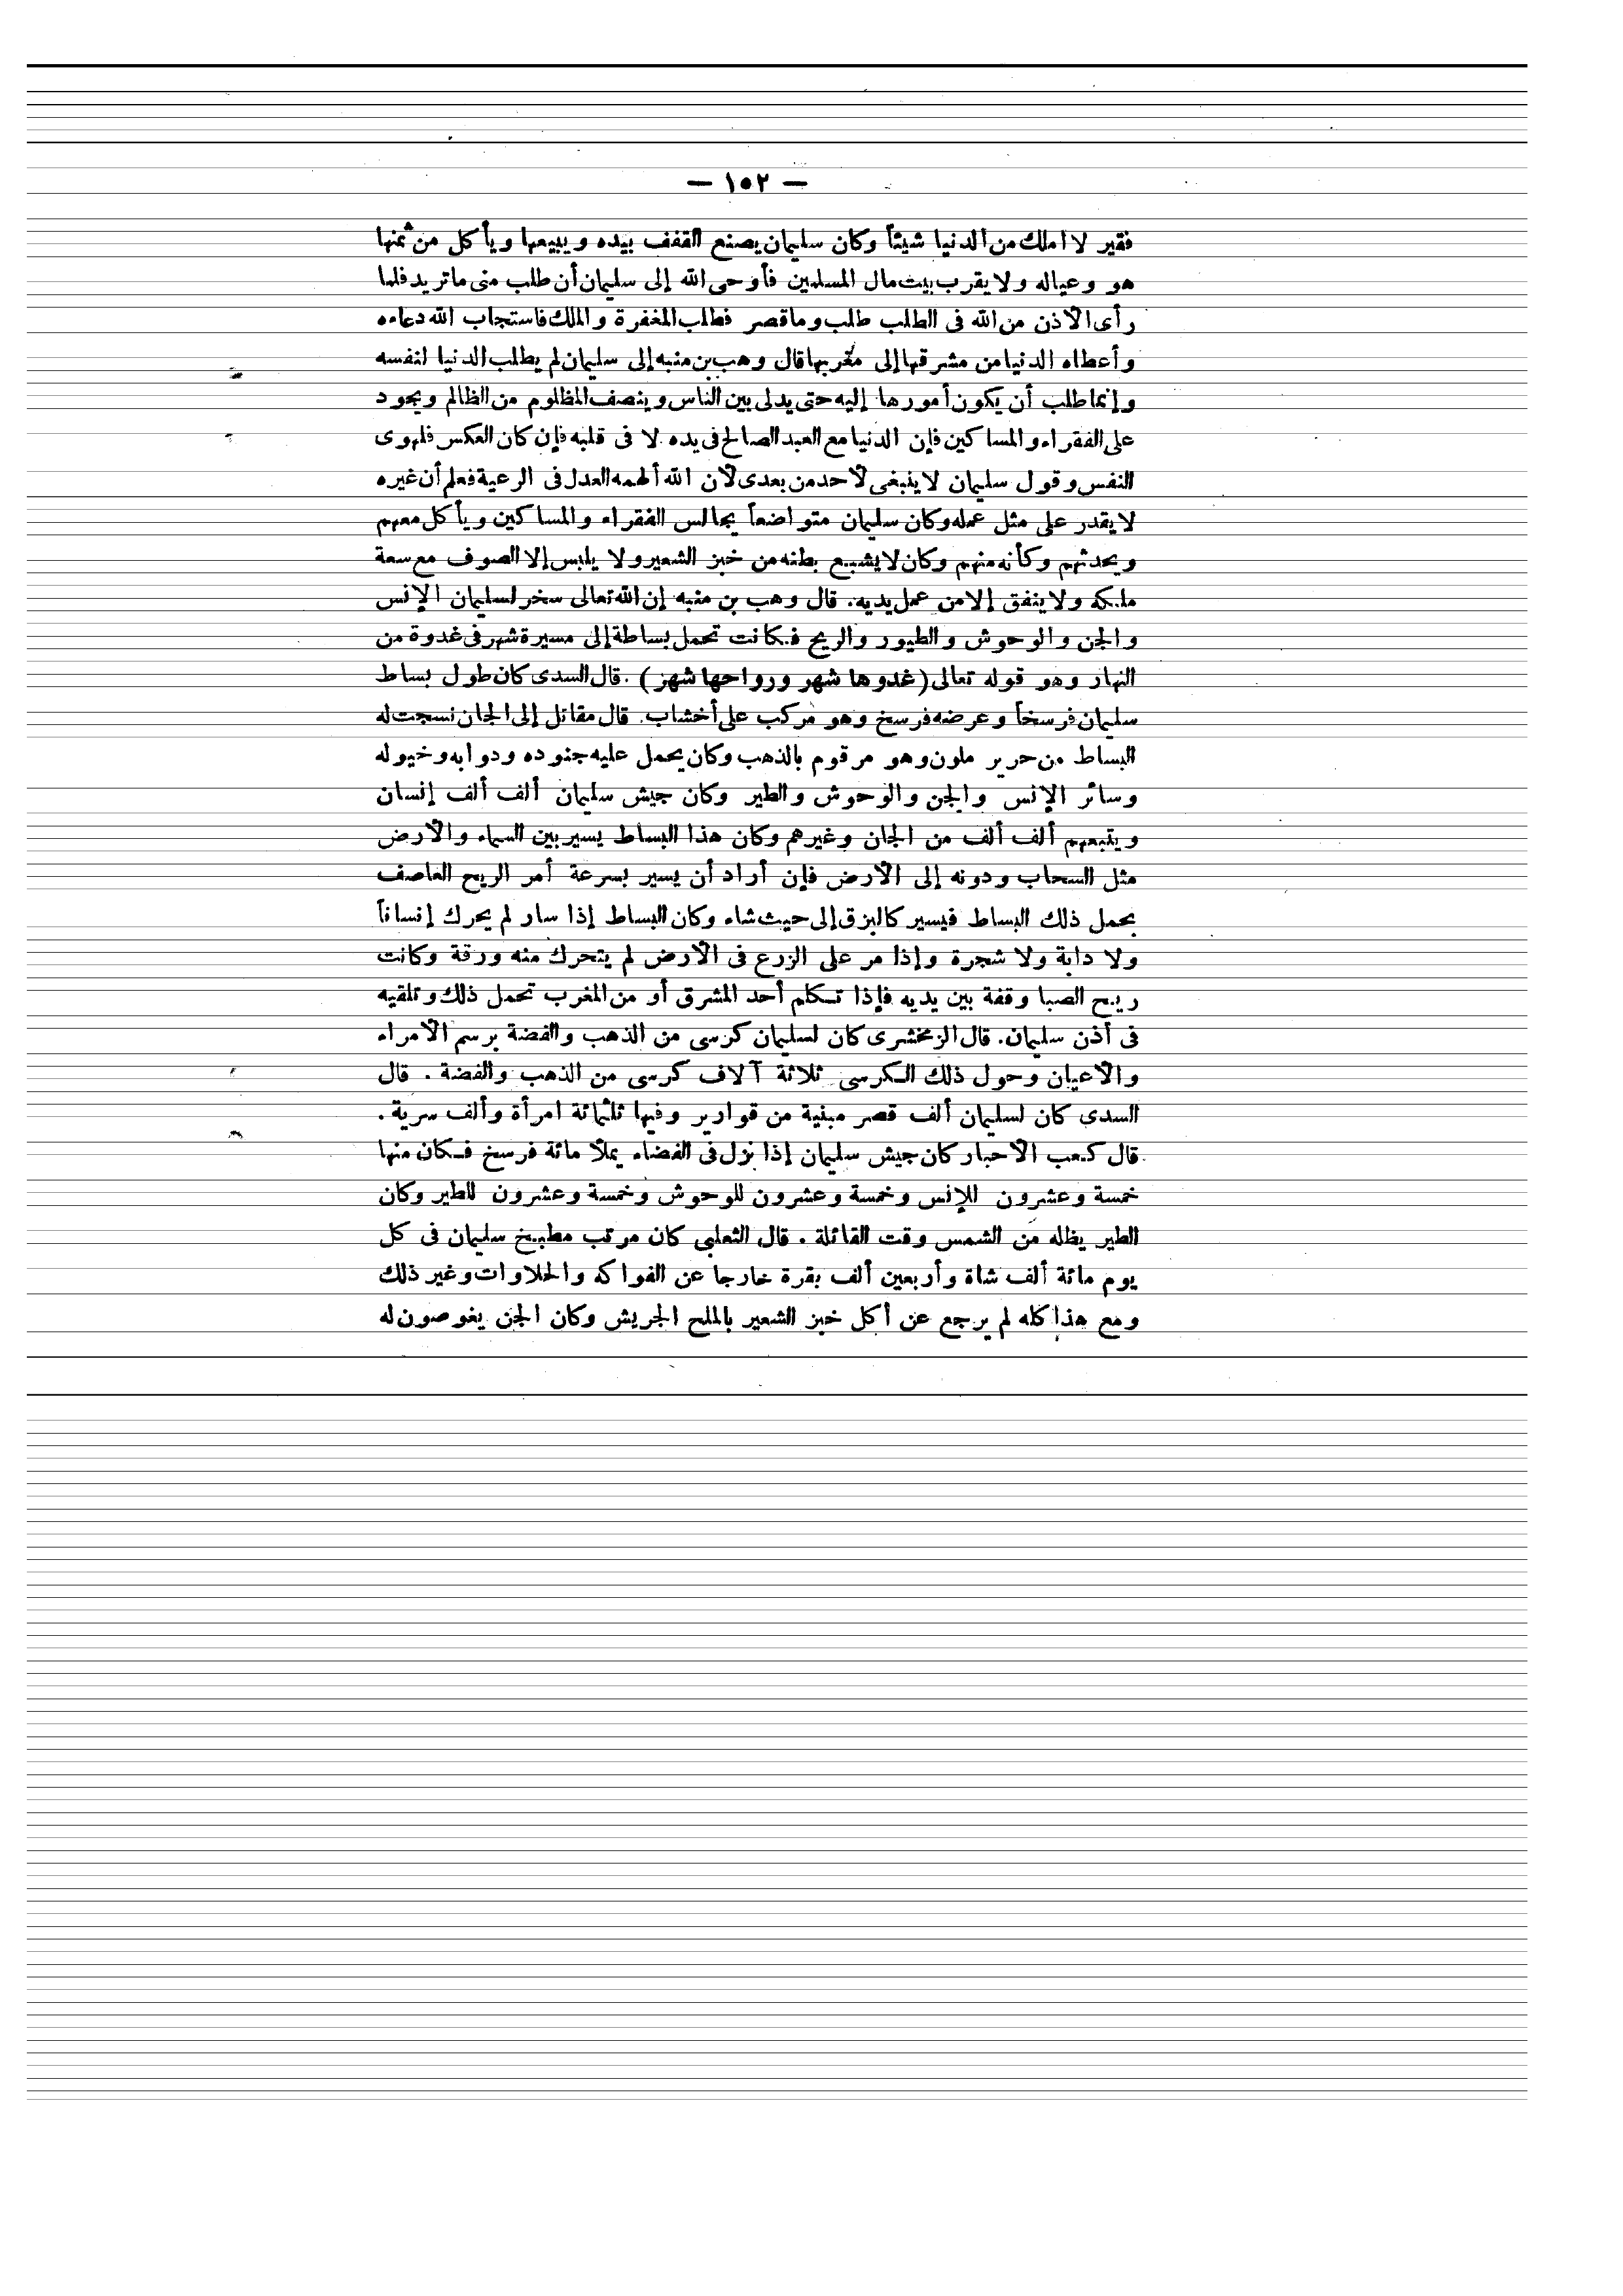 — ١٥٢ —
فقير لا املك من الدنيا شيئاً وكان سليمان يصنع القفف بيده ويبيعها ويأكل من ثمنها
هو وعياله ولا يقرب بيت مال المسلمين فأوحى الله إلى سليمان أن طلب منى ما تريد فلما
رأى الأذن من الله فى الطلب طلب وما قصر فطلب المغفرة والملك فاستجاب الله دعاءه
وأعطاه الدنيا من مشرقها إلى مغربها قال وهب بن منبه إلى سليمان لم يطلب الدنيا لنفسه
وإنما طلب أن يكون أمورها إليه حتى يدلى بين الناس وينصف المظلوم من الظالم ويجود
على الفقراء والمساكين فإن الدنيا مع العبد الصالح فى يده لا فى قلبه فإن كان العكس فلهوى
النفس وقول سليمان لا ينبغى لأحد من بعدى لأن الله ألهمه العدل فى الرعية فعلم أن غيره
لا يقدر على مثل عمله وكان سليمان متواضعاً يجالس الفقراء والمساكين ويأكل معهم
ويحدثهم وكأنه منهم وكان لا يشبع بطنه من خبز الشعير ولا يلبس إلا الصوف مع سعة
ملكه ولا ينفق إلا من عمل يديه. قال وهب بن منبه إن الله تعالى سخر لسليمان الإنس
والجن والوحوش والطيور والريح فكانت تحمل بساطة إلى مسيرة شهر فى غدوة من
النهار وهو قوله تعالى (غدوها شهر ورواحها شهز) . قال السدى كان طول بساط
سليمان فرسخاً وعرضه فرسخ وهو مركب على أخشاب. قال مقاتل إلى الجان نسجت له
البساط من حرير ملون وهو مرقوم بالذهب وكان يحمل عليه جنوده ودوابه وخيوله
وسائر الإنس والجن والوحوش والطير وكان جيش سليمان ألف ألف إنسان
ويتبعهم ألف ألف من الجان وغيرهم وكان هذا البساط يسير بين السماء والأرض
مثل السحاب ودونه إلى الأرض فإن أراد أن يسير بسرعة أمر الريح العاصف
يحمل ذلك البساط فيسير كالبزق إلى حيث شاء وكان البساط إذا سار لم يحرك إنساناً
ولا دابة ولا شجرة وإذا مر على الزرع فى الأرض لم يتحرك منه ورقة وكانت
ريح الصبا وقفة بين يديه فإذا تكلم أحد المشرق أو من المغرب تحمل ذلك وتلقيه
فى أذن سليمان. قال الزمخشرى كان لسليمان كرسى من الذهب والفضة برسم الأمراء
والأعيان وحول ذلك الكرسى ثلاثة آلاف كرسى من الذهب والفضة . قال
السدى كان لسليمان ألف قصر مبنية من قوارير وفيها ثلثمائة امرأة وألف سرية .
قال كعب الأحبار كان جيش سليمان إذا نزل فى الفضاء يملأ مائة فرسخ فكان منها
خمسة وعشرون للإنس وخمسة وعشرون للوحوش وخمسة وعشرون للطير وكان
الطير يظله من الشمس وقت القائلة . قال الثعلبى كان مرتب مطبخ سليمان فى كل
يوم مائة ألف شاة وأربعين ألف بقرة خارجا عن الفواكه والحلاوات وغير ذلك
ومع هذا كله لم يرجع عن أكل خبز الشعير بالملح الجريش وكان الجن يغوصون له